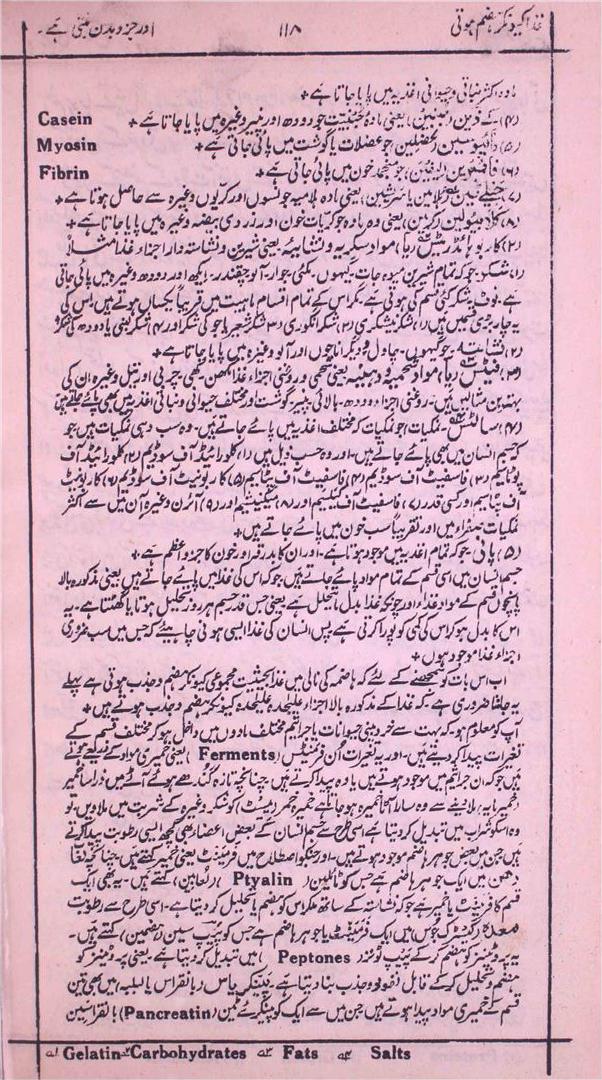 غذا کیونکر ہضم ہوتی ۱۱۸ اور جزو بدن بنتی ہے۔
مادہ اکثر نباتی و حیوانی اغذیہ میں پایا جاتا ہے +
(۴) کے ذین (جبنین) یعنی مادۂ جبنیت جو دودھ اور پنیر وغیرہ میں پایا جاتا ہے + Casein
(۵) مائیوسین (عضلین) جو عضلات یا گوشت میں پائی جاتی ہے + Myosin
(۶) فائبرین (لیفین) جو منجمد خون میں پائی جاتی ہے + Fibrin
(۷) جیلے ٹین یعنی مادہ ہلامیہ جو نسوں اور ہڈیوں وغیرہ سے حاصل ہوتا ہے +
(۸) یعنی وہ مادہ جو کریات خون اور زردی بیضہ وغیرہ میں پایا جاتا ہے +
(۲) کاربوہائڈریٹس (یا) مواد سکریہ و نشاییہ یعنی شیریں و نشاستہ دار اجزاء غذا مثلاً
(۱) شکر۔ جو کہ تمام شیریں میوہ جات۔ گیہوں۔ مکئی۔ جوار۔ آلو چقندر۔ ایکھ اور دودھ وغیرہ میں پائی جاتی
ہے۔ نوٹ شکر کئی قسم کی ہوتی ہے۔ مگر اس کے تمام اقسام ماہیت میں قریباً یکساں ہوتے ہیں۔ اس کی
یہ چار بڑی قسمیں ہیں (۱) شکر نیشکری (۲) شکر انگوری (۳) شکر شعیر یا جو کی شکر اور (۴) شکر لبنی یا دودھ کی شکر
(۲) نشاستہ۔ جو گیہوں۔ چاول و دیگر اناجوں اور آلو وغیرہ میں پایا جاتا ہے +
(۳) فیٹس (یا) مواد شحمیہ و دہنیہ یعنی شحمی و روغنی اجزاء غذا مکھن۔ گھی۔ چربی اور تیل وغیرہ ان کی
بہترین مثالیں ہیں۔ روغنی اجزاء دودھ۔ بالائی۔ پنیر۔ گوشت اور مختلف حیوانی و نباتی اغذیہ میں بھی پائے جاتے ہیں
(۴) سالٹس۔ نمکیات جو نمکیات کہ مختلف اغذیہ میں پائے جاتے ہیں۔ وہ سب وہی نمکیات ہیں جو
کہ جسم انسان میں بھی پائے جاتے ہیں۔ اور وہ حسب ذیل ہیں (۱) کلورائیڈ آف سوڈیم (۲) کلورائیڈ آف
پوٹاسیم (۳) فاسفیٹ آف سوڈیم (۴) فاسفیٹ آف پوٹاسیم (۵) کاربونیٹ آف سوڈیم (۶) کاربونیٹ
آف پوٹاسیم اور کسی قدر (۷) فاسفیٹ آف کیلسیم اور (۸) میگنیشیم اور (۹) آئرن وغیرہ ان میں سے اکثر
نمکیات صفراء میں اور تقریباً سب خون میں پائے جاتے ہیں +
(۵) پانی۔ جو کہ تمام اغذیہ میں موجود ہوتا ہے۔ اور ان کا بدرقہ اور خون کا جزو اعظم ہے +
جسم انسان میں اسی قسم کے تمام مواد پائے جاتے ہیں جو کہ اس کی غذا میں پائے جاتے ہیں یعنی مذکورہ بالا
پانچوں قسم کے مواد غذا۔ اور چونکہ غذا بدل ما یتحلل ہے یعنی جس قدر جسم ہر روز تحلیل ہوتا یا گھٹتا ہے۔ یہ
اس کا بدل ہو کر اس کی کمی کو پورا کرتی ہے پس انسان کی غذا ایسی ہونی چاہیئے کہ جس میں سب ضروری
اجزاء غذا موجود ہوں +
اب اس بات کو سمجھنے کے لئے کہ ہاضمہ کی نالی میں غذا بحیثیت مجموعی کیونکر ہضم و جذب ہوتی ہے پہلے
یہ جاننا ضروری ہے۔ کہ غذا کے مذکورہ بالا اجزاء علیحدہ علیحدہ کیونکر ہضم و جذب ہوتے ہیں +
آپ کو معلوم ہو۔ کہ بہت سے خردبینی حیوانات یا جراثیم مختلف مادوں میں داخل ہو کر مختلف قسم کے
تغیرات پیدا کر دیتے ہیں۔ اور یہ تغیرات ان فرمنٹس (Ferments) یعنی خمیری مواد کے ذریعے ہوتے
ہیں جو کہ ان جراثیم میں موجود ہوتے ہیں یا وہ پیدا کرتے ہیں۔ چنانچہ تازہ گندھے ہوئے آٹے میں ذرا سا خمیر
(خمیر مایہ) ملا دینے سے وہ سارا آٹا خمیرہ ہو جاتا ہے خمیرہ خمر (ییسٹ) کو شکر وغیرہ کے شربت میں ملا دیں۔ تو
وہ اس کو شراب میں تبدیل کر دیتا ہے اسی طرح سے جسم انسان کے بعض اعضاء بھی کچھ ایسی رطوبت پیدا کرتے
ہیں جن میں بعض جوہر ہاضم موجود ہوتے ہیں۔ اور جن کو اصطلاح میں فرمینٹ یعنی خمیر کہتے ہیں۔ چنانچہ لعاب
دہن میں ایک جوہر ہاضم ہے جس کو ٹائیلین (Ptyalin) (لعابین) کہتے ہیں۔ یہ بھی ایک
قسم کا فرمینٹ یا خمیر ہے جو کہ نشاستہ کے ساتھ ملکر اس کو ہضم یا تحلیل کر دیتا ہے۔ اسی طرح سے رطوبت
معدہ (گیسٹرک جوس) میں ایک فرمینٹ یا جوہر ہاضم ہے جس کو پیپ سین (ہضمین) کہتے ہیں۔
یہ پروٹینز کو ہضم کر کے پیپ ٹونز (Peptones) میں تبدیل کر دیتا ہے۔ یعنی پروٹینز کو
ہضم و تحلیل کر کے قابل نفوذ و جذب بنا دیتا ہے۔ پینکریاس (یا) بانقراس یا لبلبہ میں بھی تین
قسم کے خمیری مواد پیدا ہوتے ہیں جن میں سے ایک کو پینکرے ٹین (Pancreatin) یا بانقراسین
۱ Gelatin ۲ Carbohydrates ۳ Fats ۴ Salts